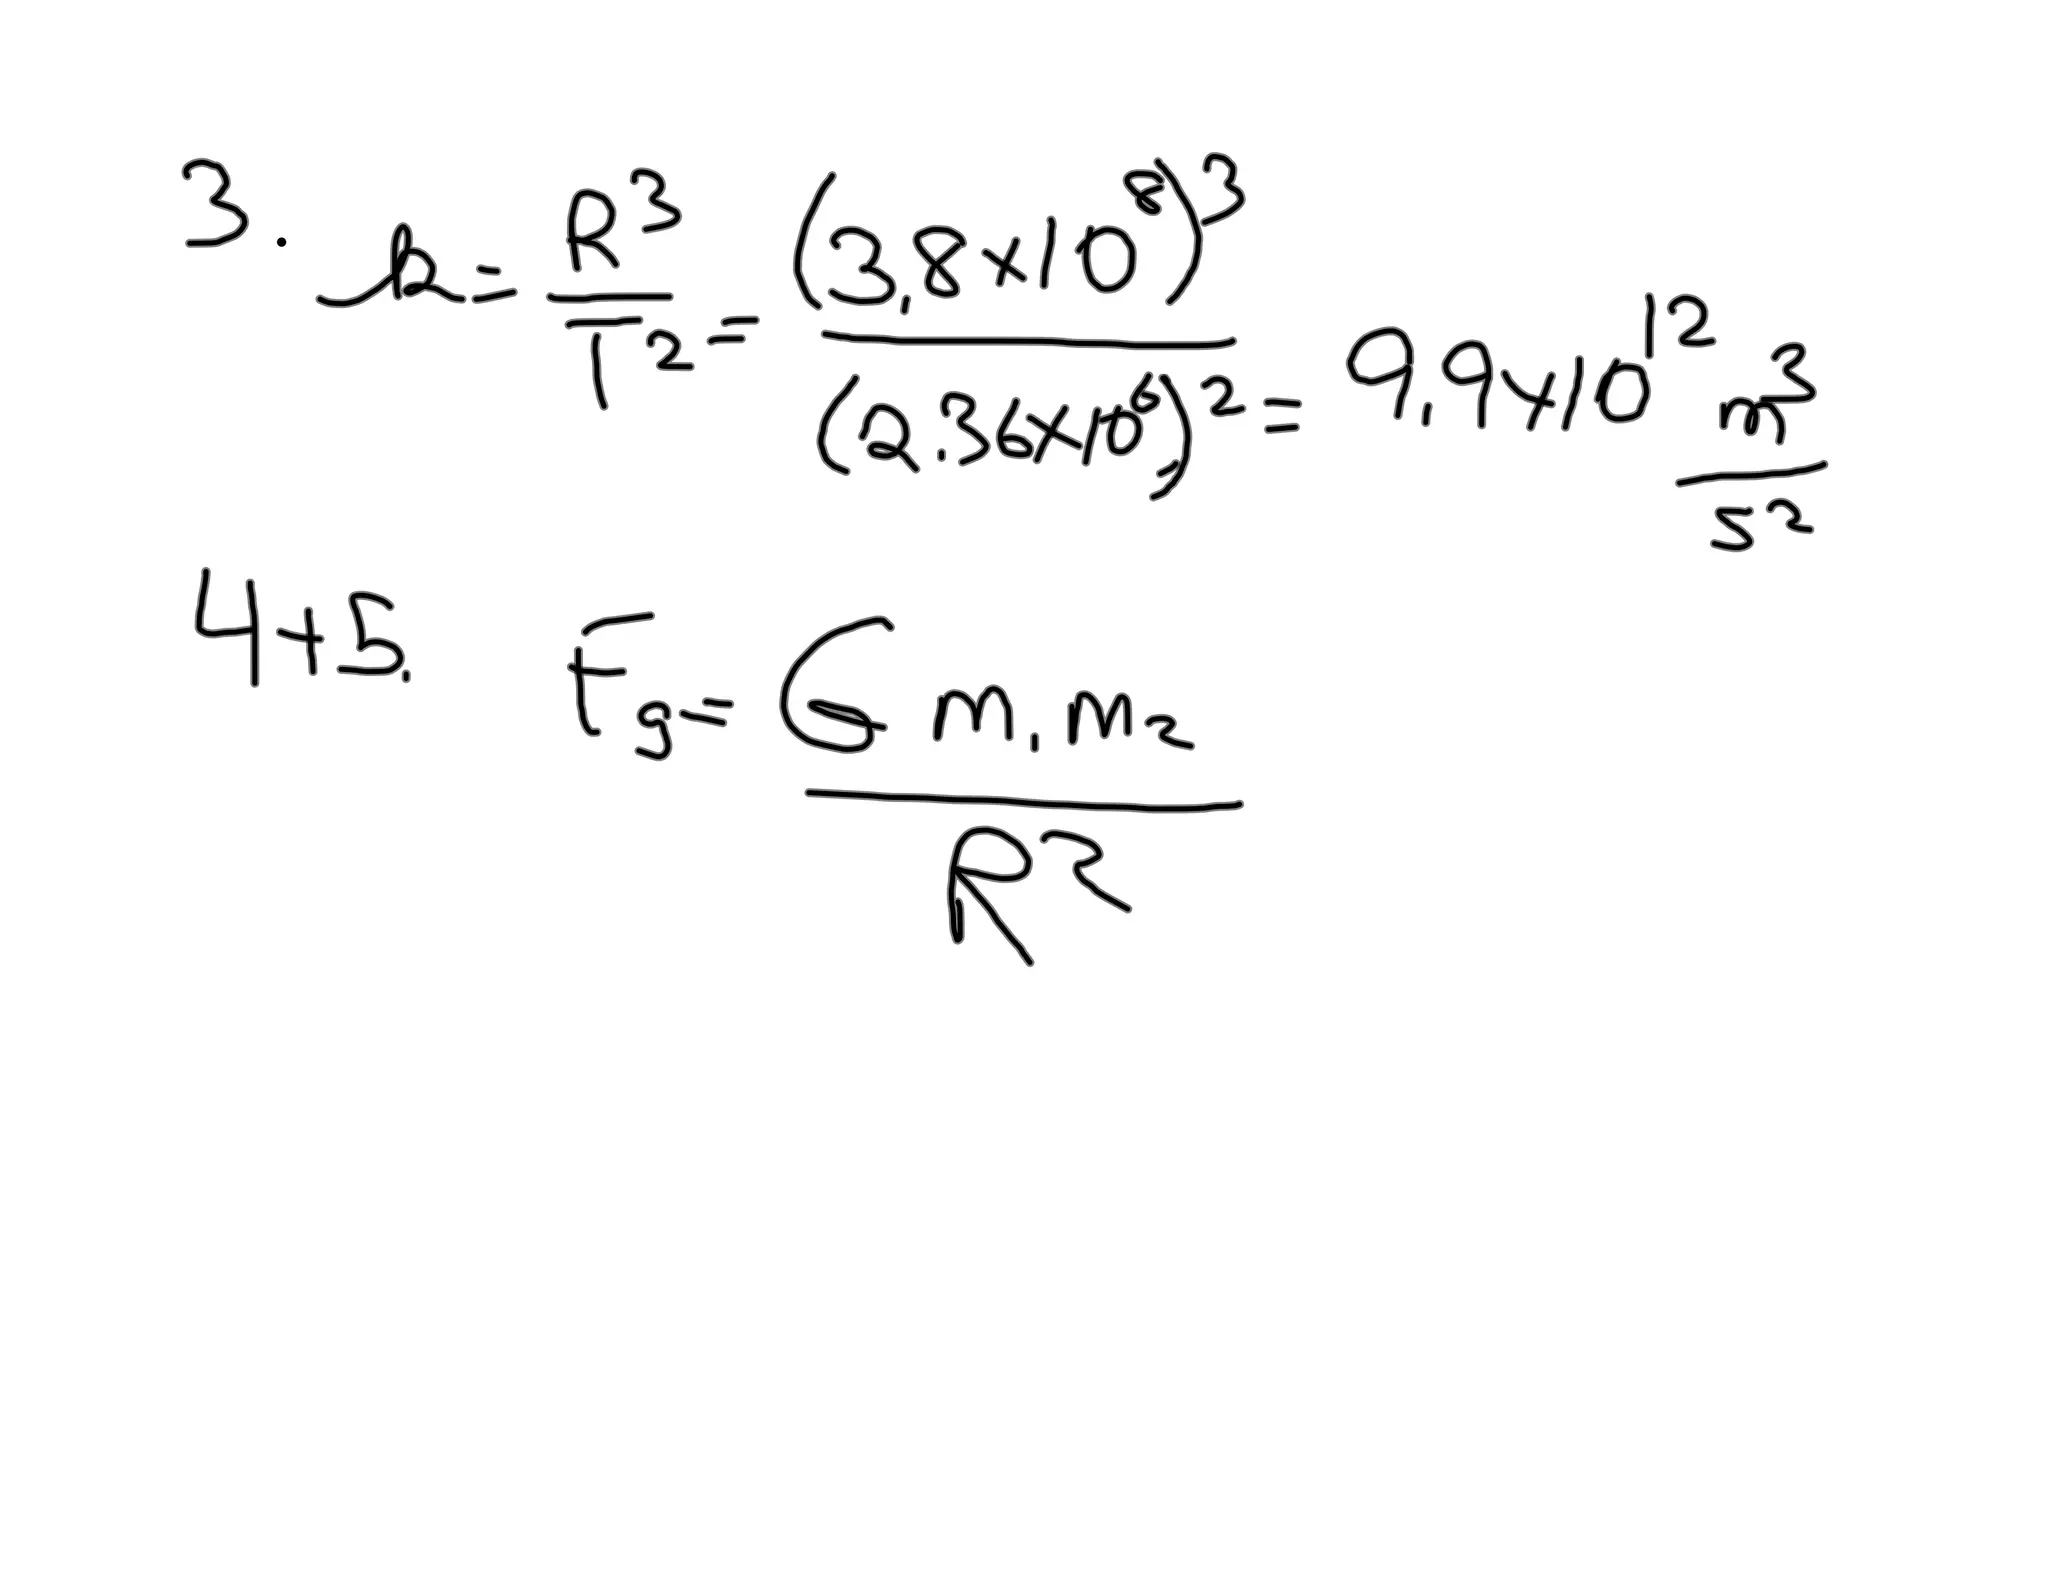 3. k = R³/T² = (3.8x10⁸)³/(2.36x10⁶)² = 9.9x10¹² m³/s²
4+5. Fg = G m₁m₂/R²